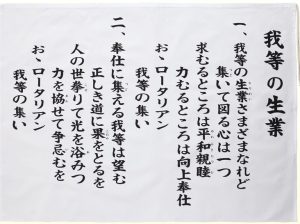 我等の生業
一、我等の生業さまざまなれど
集いて図る心は一つ
求むるところは平和親睦
力むるところは向上奉仕
おゝロータリアン
我等の集い
二、奉仕に集える我等は望む
正しき道に果をとるを
人の世挙りて光を浴みつ
力を協せて争忌むを
おゝロータリアン
我等の集い